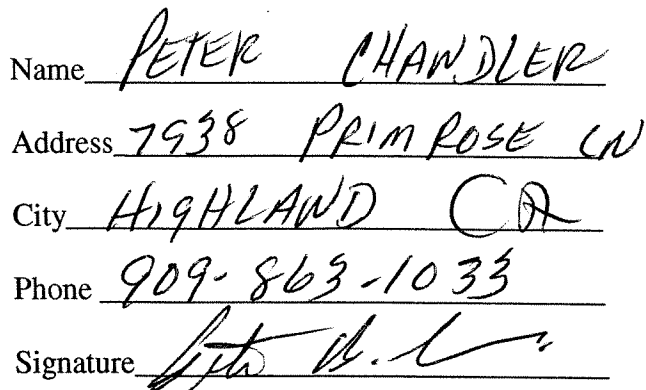 Name PETER CHANDLER
Address 7938 PRIMROSE LN
City HIGHLAND CA
Phone 909-863-1033
Signature